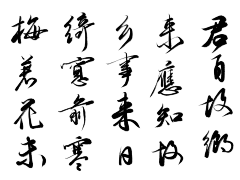 君自故鄉
来應知故
乡事来日
綺窗前寒
梅著花未